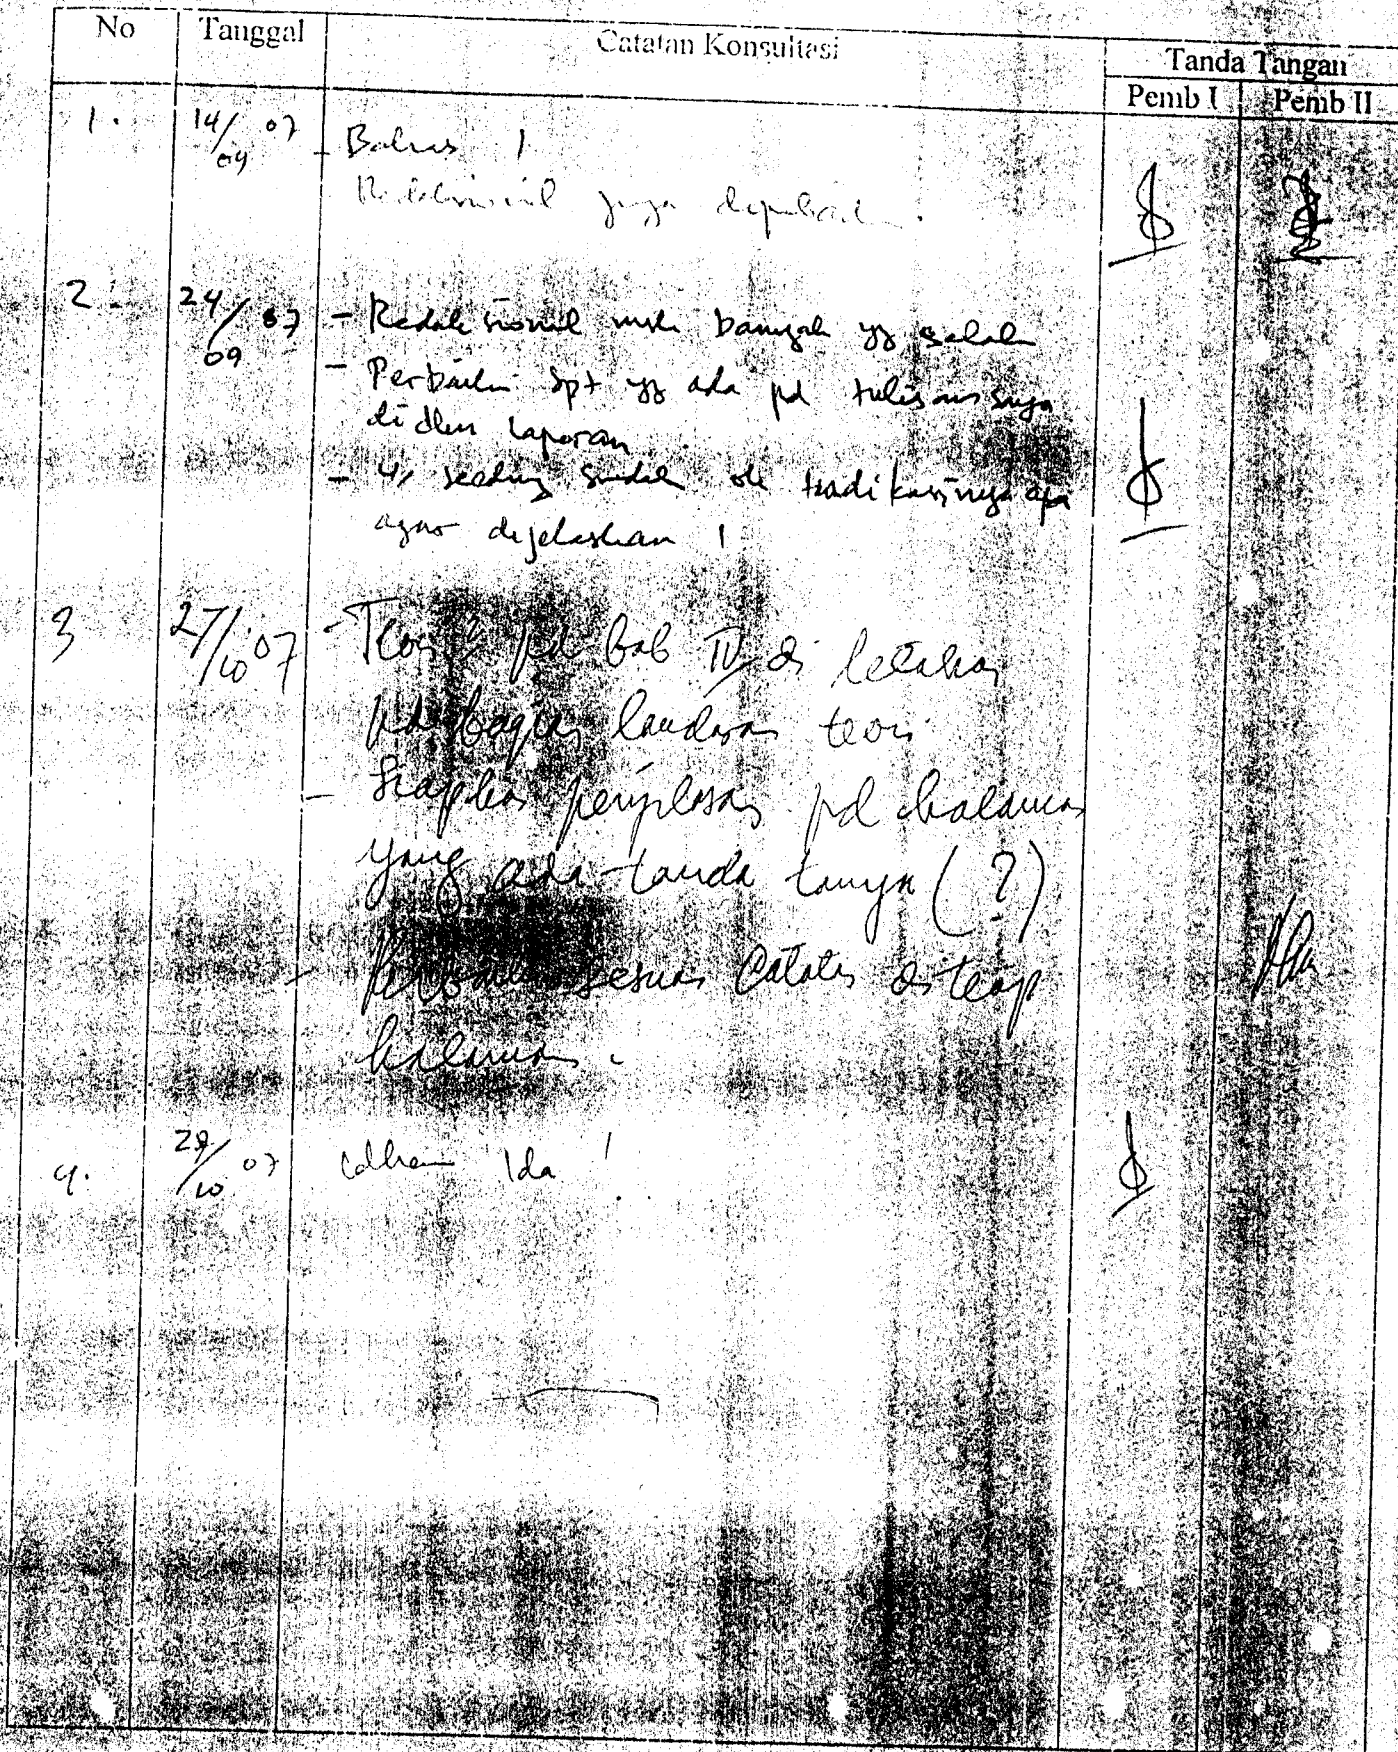 No Tanggal Catatan Konsultasi Tanda Tangan
Pemb I Pemb II
1. 14/09 07 - Bahas !
juga diperbaiki.
2. 24/09 07 - Redaksionil msh banyak yg salah
- Perbaiki spt yg ada pd tulisan saya
didlm laporan
- U/ seeding sudah ok indikasinya apa
agar dijelaskan !
3 27/10 07 - Teori2 pd bab IV di letakan
pd bagian landasan teori
- Siapkan penjelasan pd halaman
yang ada tanda tanya (?)
- Perbaikan sesuai catatan di tiap
halaman.
4. 29/10 07